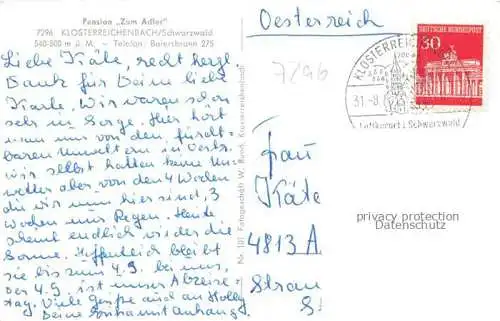 Pension „Zum Adler"
7296 KLOSTERREICHENBACH/Schwarzwald
540-800 m ü. M. – Telefon: Baiersbronn 275
Liebe Käte, recht herzl.
Dank für Deine liebe
Karte. Wir waren schon
sehr in Sorge. Hier hört
man nur von den furcht-
baren Unwettern in Österr.
Wir selbst hatten keine Un-
wetter aber von den 4 Wochen
die wir nun hier sind, 3
Wochen nur Regen. Heute
scheint endlich wieder die
Sonne. Hoffentlich bleibt
sie bis zum 4.9. bei uns,
der 4.9. ist unser Abreise-
tag. Viele Grüße auch an Holly
Deine samt Anhang
Nr. 101 Fotogeschäft W.
Oesterreich
7296
KLOSTERREICHENB
31.-8.
Luftkurort i. Schwarzwald
DEUTSCHE BUNDESPOST
30
Frau
Käte
4813 A
Strau
St
privacy protection
Datenschutz